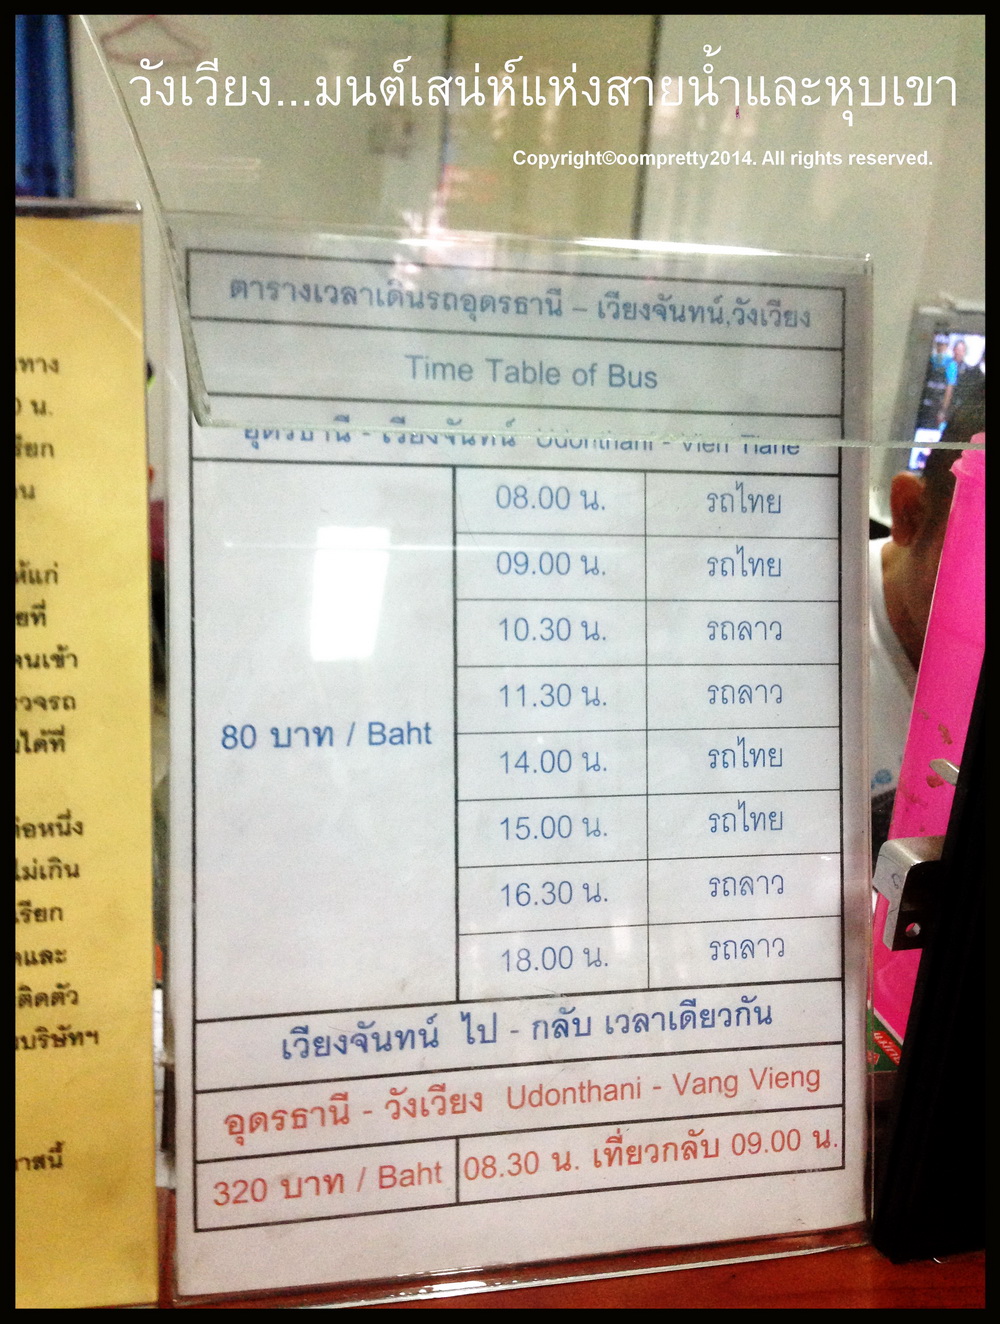 วังเวียง...มนต์เสน่ห์แห่งสายน้ำและหุบเขา
Copyright©oompretty2014. All rights reserved.
ตารางเวลาเดินรถอุดรธานี – เวียงจันทน์,วังเวียง
Time Table of Bus
อุดรธานี - เวียงจันทน์ Udonthani - Vien Tiane
80 บาท / Baht
08.00 น. รถไทย
09.00 น. รถไทย
10.30 น. รถลาว
11.30 น. รถลาว
14.00 น. รถไทย
15.00 น. รถไทย
16.30 น. รถลาว
18.00 น. รถลาว
เวียงจันทน์ ไป - กลับ เวลาเดียวกัน
อุดรธานี - วังเวียง Udonthani - Vang Vieng
320 บาท / Baht 08.30 น. เที่ยวกลับ 09.00 น.
ทาง
น.
ที่
รถ
ต่อหนึ่ง
ไม่เกิน
เรียก
และ
ติดตัว
บริษัทฯ